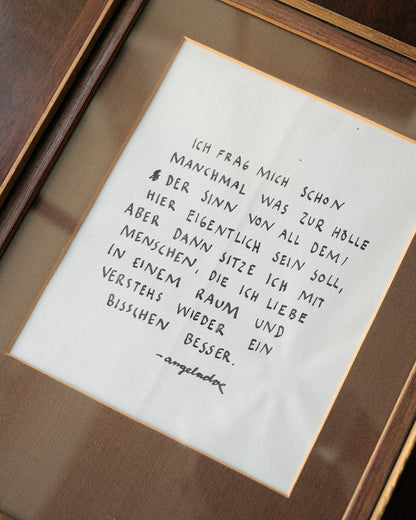 ICH FRAG MICH SCHON
MANCHMAL WAS ZUR HÖLLE
DER SINN VON ALL DEM/
HIER EIGENTLICH SEIN SOLL,
ABER DANN SITZE ICH MIT
MENSCHEN, DIE ICH LIEBE
IN EINEM RAUM UND
VERSTEHS WIEDER EIN
BISSCHEN BESSER.
-angeladoe